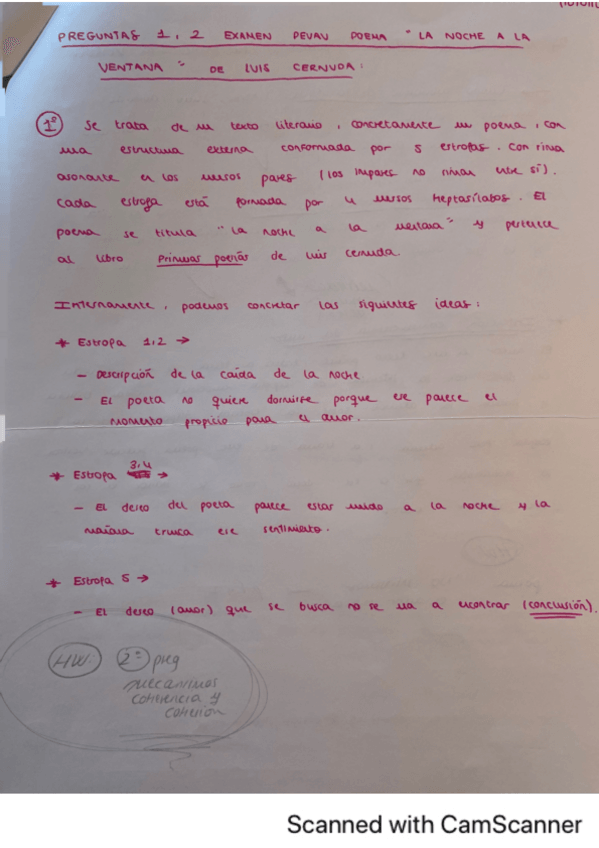 PREGUNTAS 1, 2 EXAMEN PEVAU POEMA "LA NOCHE A LA
VENTANA" DE LUIS CERNUDA:
1º Se trata de un texto literario, concretamente un poema, con
una estructura externa conformada por 5 estrofas. Con rima
asonante en los versos pares (los impares no riman entre sí).
Cada estrofa está formada por 4 versos heptasílabos. El
poema se titula "La noche a la ventana" y pertenece
al libro Primeras poesías de Luis Cernuda.
Internamente, podemos concretar las siguientes ideas:
* Estrofa 1,2 →
- Descripción de la caída de la noche
- El poeta no quiere dormirse porque ese parece el
momento propicio para el amor.
* Estrofa 3,4 →
- El deseo del poeta parece estar unido a la noche y la
mañana trunca ese sentimiento.
* Estrofa 5 →
- El deseo (amor) que se busca no se va a encontrar (conclusión).
HW: 2º preg
mecanismos
coherencia y
cohesión
Scanned with CamScanner